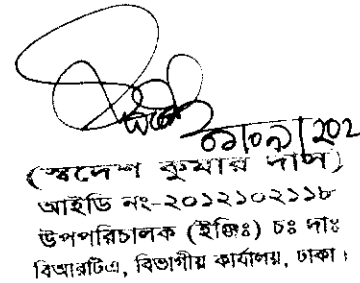 ০১|০৯|202
(স্বদেশ কুমার দাস)
আইডি নং-২০১২১০২১১৮
উপপরিচালক (ইঞ্জিঃ) চঃ দাঃ
বিআরটিএ, বিভাগীয় কার্যালয়, ঢাকা।